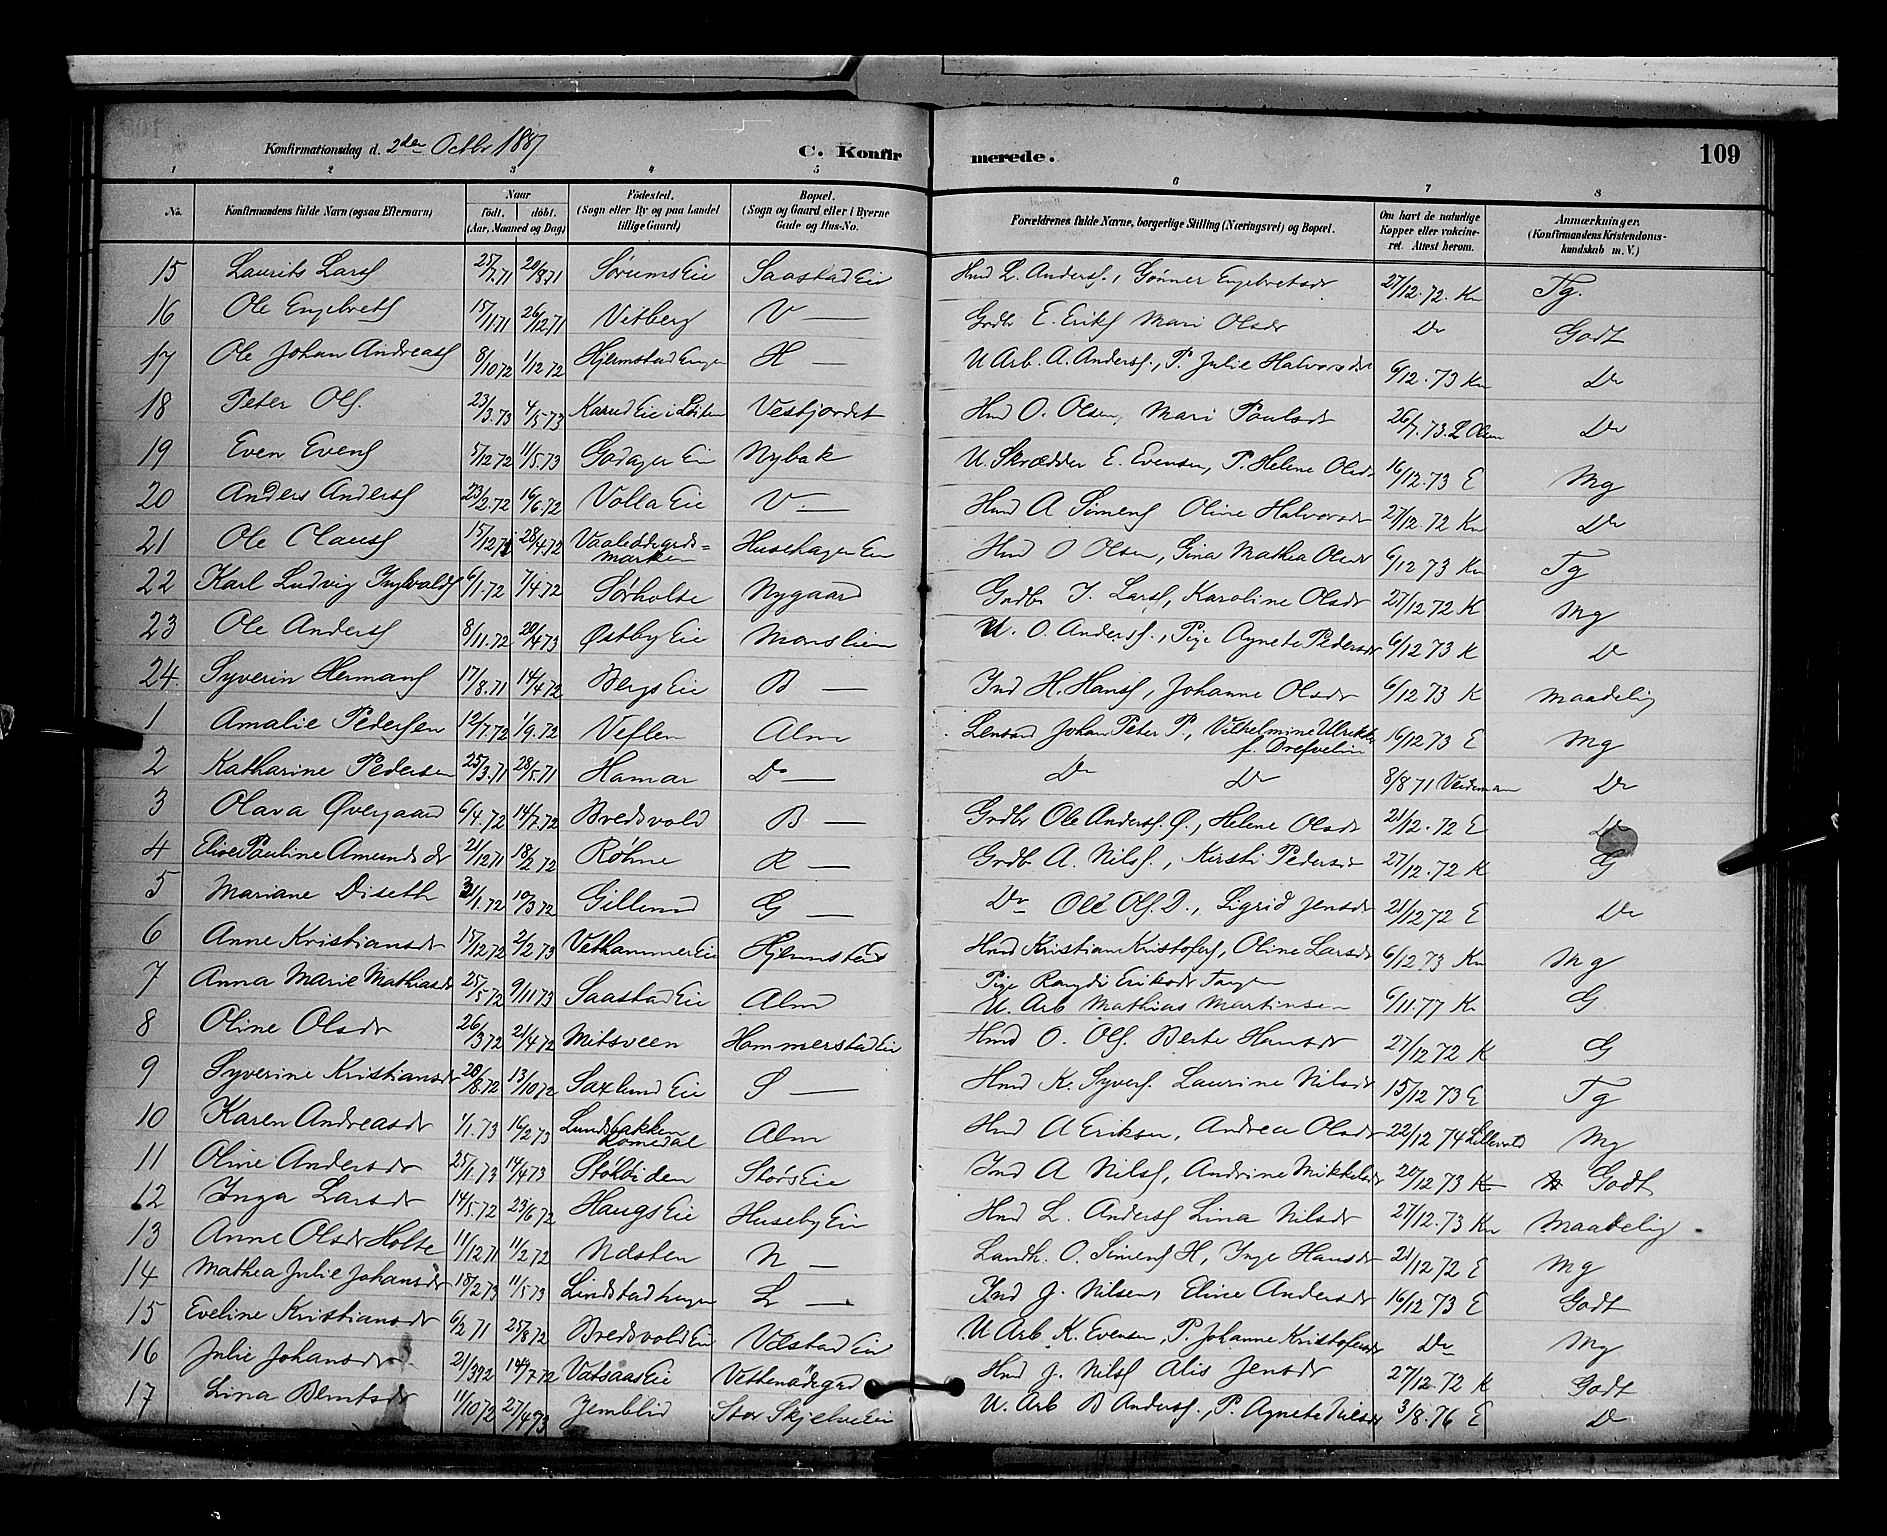 Konfirmationsdag d. 2den Octbr 1887 C. Konfirmerede. 109
1 2 3 4 5 6 7 8
No. Konfirmandens fulde Navn (ogsaa Efternavn) Naar født. døbt. (Aar, Maaned og Dag) Fødested. (Sogn eller By og paa Landet tillige Gaard) Bopæl. (Sogn og Gaard eller i Byerne Gade og Hus-No. Forældrenes fulde Navne, borgerlige Stilling (Næringsvei) og Bopæl. Om havt de naturlige Kopper eller vakcineret. Attest herom. Anmærkninger. (Konfirmandens Kristendomskundskab m. V.)
15 Laurits Lars 25/7.71 20/8.71 Sørums Eie Saastad Eie Hmd L. Anders., Gønner Engebretsdr 27/12.72. Kn Tg.
16 Ole Engebrets 15/11 71 26/12.71 Vitberg V — Grdbr E. Eriks Mari Olsdr Do Godt
17 Ole Johan Andreas 8/10 72 1/12 72 Hjelmstad Engen H — U Arb. A. Anders., P. Julie Halvorsdr 6/12.73 Kn Do
18 Peter Ols. 23/3.73 4/5 73 Karud Eie i Løiten Vestjordet Hmd O. Olsen, Mari Paulsdr 26/7.73. L Olsen Do
19 Even Evens 5/12 72 11/5.73 Godager Eie Nybak U. Skrædder E. Evensen, P. Helene Olsdr 16/12.73 E Mg
20 Anders Anders 23/2.72 16/6.72 Volla Eie V. — Hmd A Simens Oline Halvorsdr 27/12.72 Kn Do
21 Ole Claus 15/12 72 28/4.72 Vaaleødegrds= marken Husehagen Eie Hmd O Olsen, Gina Mathea Olsdr 6/12 73 Kn Tg
22 Karl Ludvig Ingvalds 6/1.72 7/4.72 Sørholte Nygaard Grdbr I. Lars, Karoline Olsdr 27/12 72 K Mg
23 Ole Anders 8/11.72 20/4 73 Østby Eie Monslien U. O. Anders., Pige Agnete Pedersdr 6/12 73 K Do
24. Syverin Hermans 17/8.71 14/4 72 Bergs Eie B — Ind H. Hans, Johanne Olsdr 6/12 73 K maadelig
1 Amalie Pedersen 12/7.72 1/9.72 Veflen Alm Lensmd Johan Peter P., Vilhelmine Ulrikke f. Drefvelin 16/12 73 E Mg
2 Katharine Pedersen 25/3.71 28/5.71 Hamar Do — Do Do 8/8 71 Do
3 Olava Øvergaard 6/4.72 14/7.72 Bredsvold B — Grdbr Ole Anders. Ø., Helene Olsdr 21/12.72 E Do
4 Elise Pauline Amundsdr 21/12 71 18/2 72 Røhne R — Grdbr A. Nils., Kirsti Pedersdr 27/12.72 K G
5 Mariane Diseth 31/1.72 10/3 72 Gillund G — Do Ole Ols. D., Sigrid Jensdr 21/12 72 E Do
6 Anne Kristiansdr 15/12 72 2/2 73 Vethammer Eie Hjelmstad Hmd Kristian Kristofers, Oline Larsdr 6/12 73 Kn Mg
7 Anna Marie Mathiasdr 25/5 72 9/11 73 Saastad Eie Alm Pige Rangdi Eriksdr
U. Arb Mathias Martinsen 6/11.77 Kn G.
8 Oline Olsdr 26/3 72 21/4 72 Mitsveen Hommerstad Eie Hmd O. Ols. Berte Hansdr 27/12 72 K G
9 Syverine Kristiansdr 28/8.72 13/10 72 Saxlund Eie S — Hmd K. Syvers. Laurine Nilsdr 15/12 73 E Tg
10 Karen Andreasdr 1/1.73 16/2 73 Lundsbakken Romedal Alm Hmd A Eriksen, Andrea Olsdr 22/12 74 Lillevold Mg
11 Oline Andersdr 25/1.73 14/4 73 Størs Eie Ind A Nils, Andrine Mikkelsdr 20/12 73 K Godt
12 Inga Larsdr 14/5.72 23/6 72 Haugs Eie Huseby Eie Hmd L. Anders Lina Nilsdr 27/12.73 Kn Maadelig
13 Anne Olsdr Holte 11/12 71 11/2 72 Næsten N — Landh. O. Simens H, Inge Hansdr 21/12 72 E Mg
14 Mathea Julie Johansdr 18/2 73 11/5 73 Lindstadhagen L — Ind J. Nilsen, Eline Andersdr 16/12 73 E Godt
15 Eveline Kristiansdr 6/2 71 25/8 72 Bredsvold Eie Væstad Eie U Arb. K. Evensen, P. Johanne Kristofersdr Do Mg
16 Julie Johansdr 21/3 72 14/7 72 Vatsaas Eie Vettenødegrd Hmd J. Nils Alis Jensdr 27/12.72 K Godt
17 Lina Berntsdr 11/10 72 27/4 73 Jemblid Stor Skjelve Eie U. Arb B Anders., P. Agnete Nilsdr 3/8.76 E Do